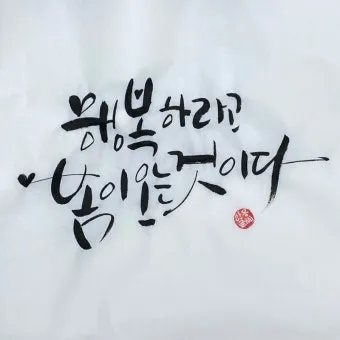 행복하라고
봄이 오는 것이다